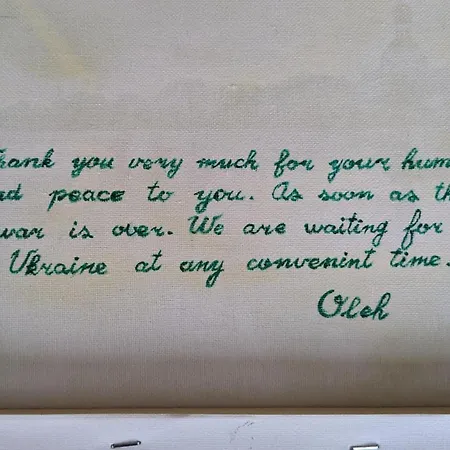 hank you very much for your hum
nd peace to you. As soon as th
war is over. We are waiting for
Ukraine at any convenint time.
Oleh